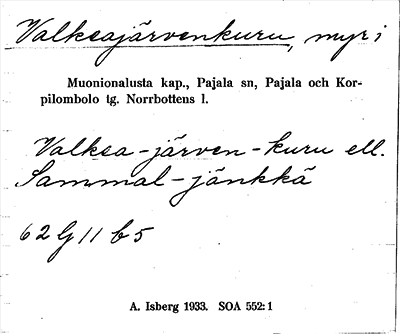 Valkeajärvenkuru, myr i
Muonionalusta kap., Pajala sn, Pajala och Kor-
pilombolo tg. Norrbottens l.
Valkea-järven-kuru ell.
Sammal-jänkkä
62 G 11 b 5
A. Isberg 1933. SOA 552:1